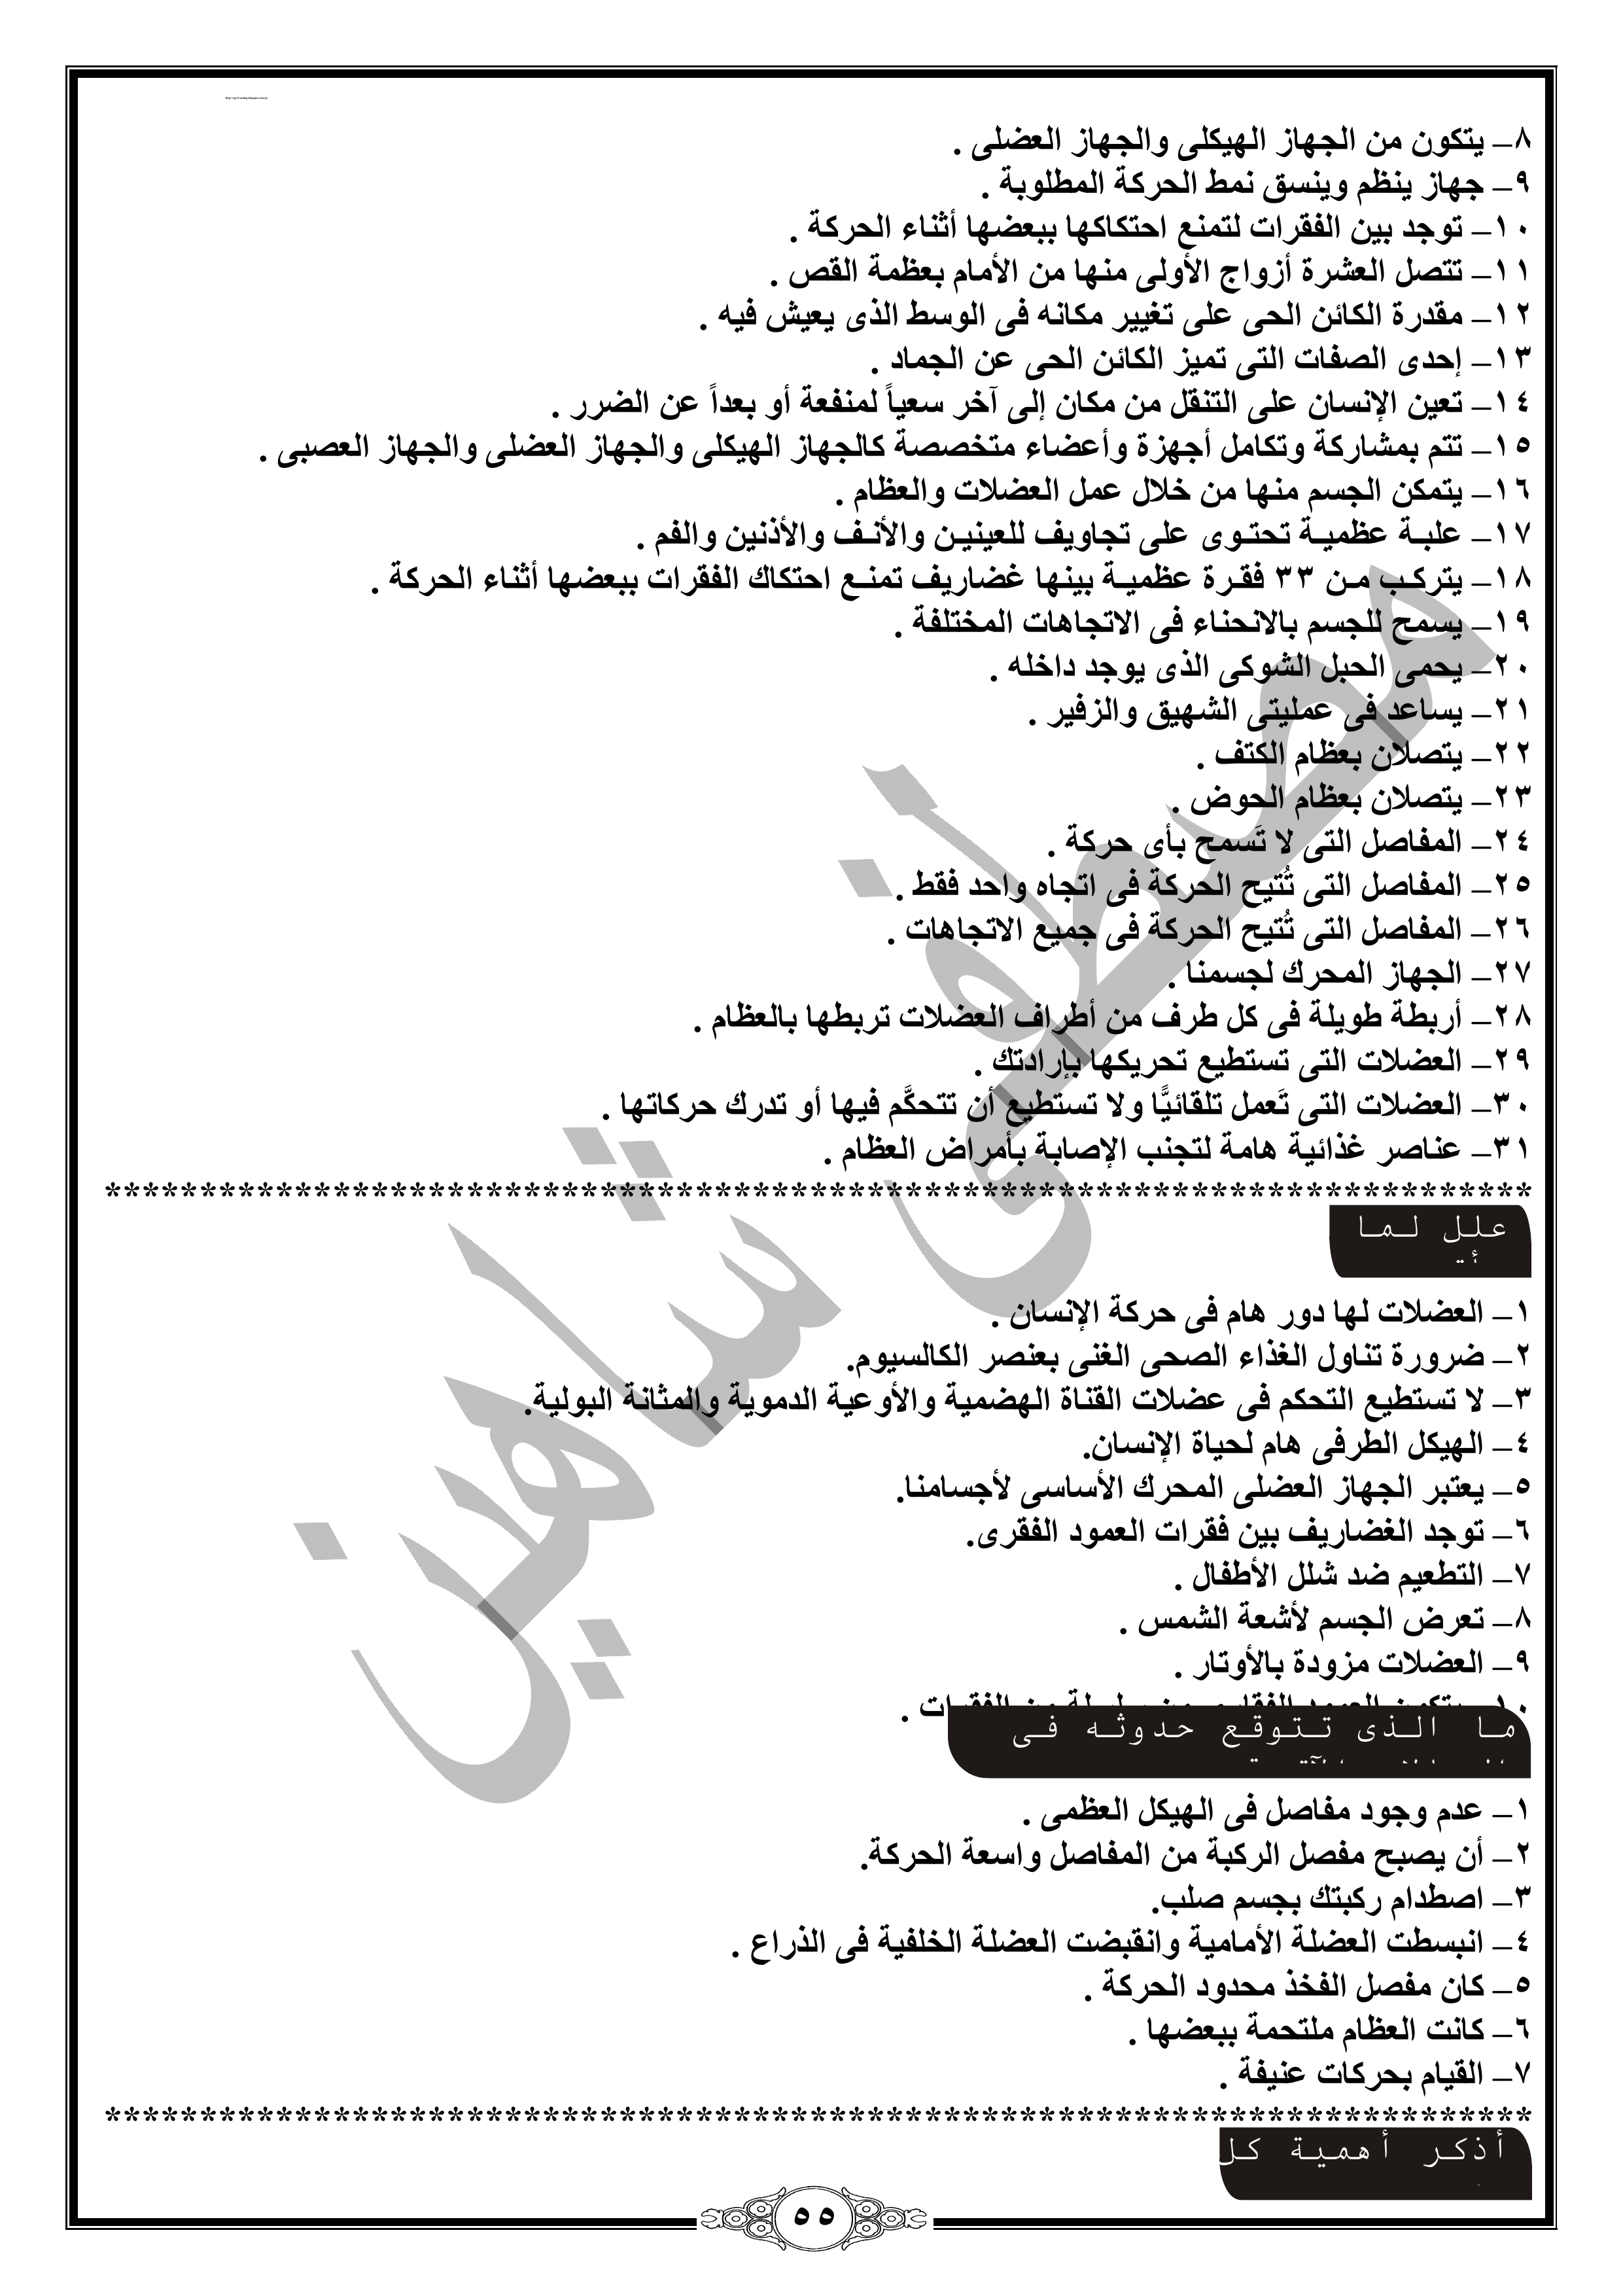 ٨– يتكون من الجهاز الهيكلى والجهاز العضلى .
٩– جهاز ينظم وينسق نمط الحركة المطلوبة .
١٠– توجد بين الفقرات لتمنع احتكاكها ببعضها أثناء الحركة .
١١– تتصل العشرة أزواج الأولى منها من الأمام بعظمة القص .
١٢– مقدرة الكائن الحى على تغيير مكانه فى الوسط الذى يعيش فيه .
١٣– إحدى الصفات التى تميز الكائن الحى عن الجماد .
١٤– تعين الإنسان على التنقل من مكان إلى آخر سعياً لمنفعة أو بعداً عن الضرر .
١٥– تتم بمشاركة وتكامل أجهزة وأعضاء متخصصة كالجهاز الهيكلى والجهاز العضلى والجهاز العصبى .
١٦– يتمكن الجسم منها من خلال عمل العضلات والعظام .
١٧– علبـة عظميـة تحتـوى على تجاويف للعينيـن والأنـف والأذنين والفم .
١٨– يتركـب مـن ٣٣ فقـرة عظميـة بينها غضاريف تمنـع احتكاك الفقرات ببعضها أثناء الحركة .
١٩– يسمح للجسم بالانحناء فى الاتجاهات المختلفة .
٢٠– يحمى الحبل الشوكى الذى يوجد داخله .
٢١– يساعد فى عمليتى الشهيق والزفير .
٢٢– يتصلان بعظام الكتف .
٢٣– يتصلان بعظام الحوض .
٢٤– المفاصل التى لا تَسمح بأى حركة .
٢٥– المفاصل التى تُتيح الحركة فى اتجاه واحد فقط .
٢٦– المفاصل التى تُتيح الحركة فى جميع الاتجاهات .
٢٧– الجهاز المحرك لجسمنا .
٢٨– أربطة طويلة فى كل طرف من أطراف العضلات تربطها بالعظام .
٢٩– العضلات التى تستطيع تحريكها بإرادتك .
٣٠– العضلات التى تَعمل تلقائيًّا ولا تستطيع أن تتحكَّم فيها أو تدرك حركاتها .
٣١– عناصر غذائية هامة لتجنب الإصابة بأمراض العظام .
*******************************************************************************
علل لما
١– العضلات لها دور هام فى حركة الإنسان .
٢– ضرورة تناول الغذاء الصحى الغنى بعنصر الكالسيوم.
٣– لا تستطيع التحكم فى عضلات القناة الهضمية والأوعية الدموية والمثانة البولية.
٤– الهيكل الطرفى هام لحياة الإنسان.
٥– يعتبر الجهاز العضلى المحرك الأساسى لأجسامنا.
٦– توجد الغضاريف بين فقرات العمود الفقرى.
٧– التطعيم ضد شلل الأطفال .
٨– تعرض الجسم لأشعة الشمس .
٩– العضلات مزودة بالأوتار .
ما الذى تتوقع حدوثه فى
١– عدم وجود مفاصل فى الهيكل العظمى .
٢– أن يصبح مفصل الركبة من المفاصل واسعة الحركة.
٣– اصطدام ركبتك بجسم صلب.
٤– انبسطت العضلة الأمامية وانقبضت العضلة الخلفية فى الذراع .
٥– كان مفصل الفخذ محدود الحركة .
٦– كانت العظام ملتحمة ببعضها .
٧– القيام بحركات عنيفة .
*******************************************************************************
أذكر أهمية كل
٥٥
مصطفى شاهين